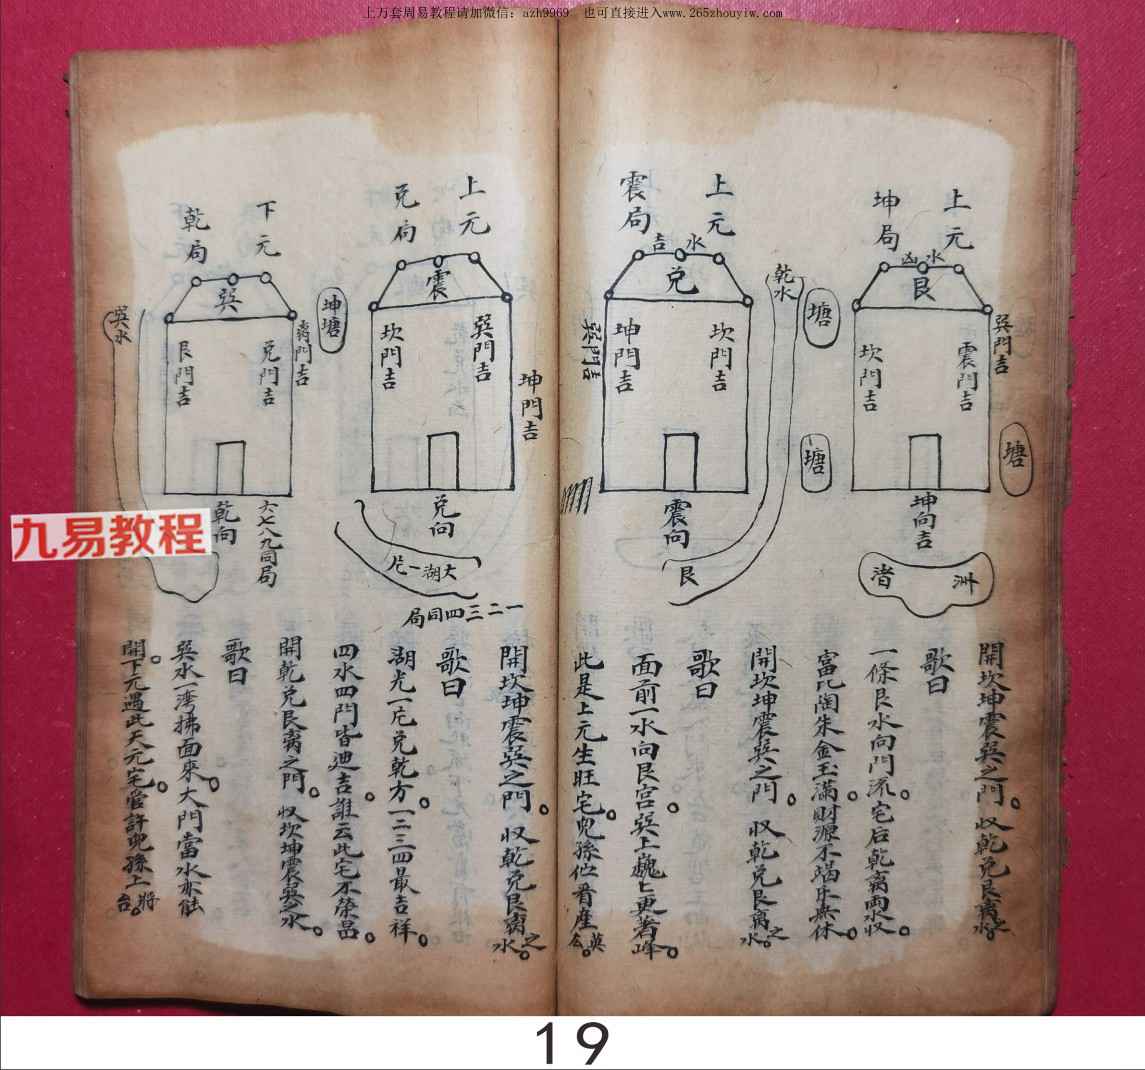 上万套周易教程请加微信：azh9969 也可直接进入www.265zhouyiw.com
上元
坤局
凶水
艮
巽門吉
震門吉
坎門吉
塘
坤向吉
洲
渚
開坎坤震巽之門。収乾兑艮离之水。
歌曰
一條艮水向門流宅后乾离両水収。
富比陶朱金玉滿。財源不竭永無休。
上元
震局
吉水
兑
乾水
塘
坎門吉
坤門吉
巽門吉
塘
震向
艮
開坎坤震巽之門。収乾兑艮离之水。
歌曰
面前一水向艮宮。巽上巍巍更着峰。
此是上元生旺宅。兒孫
上元
兑局
震
巽門吉
坎門吉
坤門吉
兑向
大湖一片
一二三四同局
開坎坤震巽之門。収乾兑艮离之水。
歌曰
湖光一片兑乾方。一二三四最吉祥。
四水四門皆迪吉。誰云此宅不榮昌。
下元
乾局
巽
坤塘
离門吉
兑門吉
艮門吉
巽水
乾向
六七八九同局
開乾兑艮离之門。収坎坤震巽之水。
歌曰
巽水一湾拂面來。大門當水亦能
開。下元遇此天元宅。管許兒孫上將台。
九易教程
19